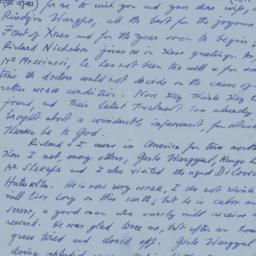 for me to wish you and your dear wife,
Rindzin Wangpo, all the best for the joyous
Feast of Xmas and for the year soon to begin.
Richard Nicholson joins me in these greetings. As
Mr Messinesi, he has not been too well for some
time the doctors could not decide on the cause of
rather weak condition. Now they think they
found, and their latest treatment has already
brought about a considerable improvement, for which
Thanks be to God.
Richard & I were in America for two months
then I met, among others, Geshe Wangyal,
Mr Shakapa and I also visited the aged Dilowa
Hutuktu. He is now very weak, I do not think
will live long on this earth; but he is calm and
serene, a good man who surely will receive
reward. He was glad to see me, but after an hour
grew tired and dozed off. Geshe Wangyal
doing splendid work